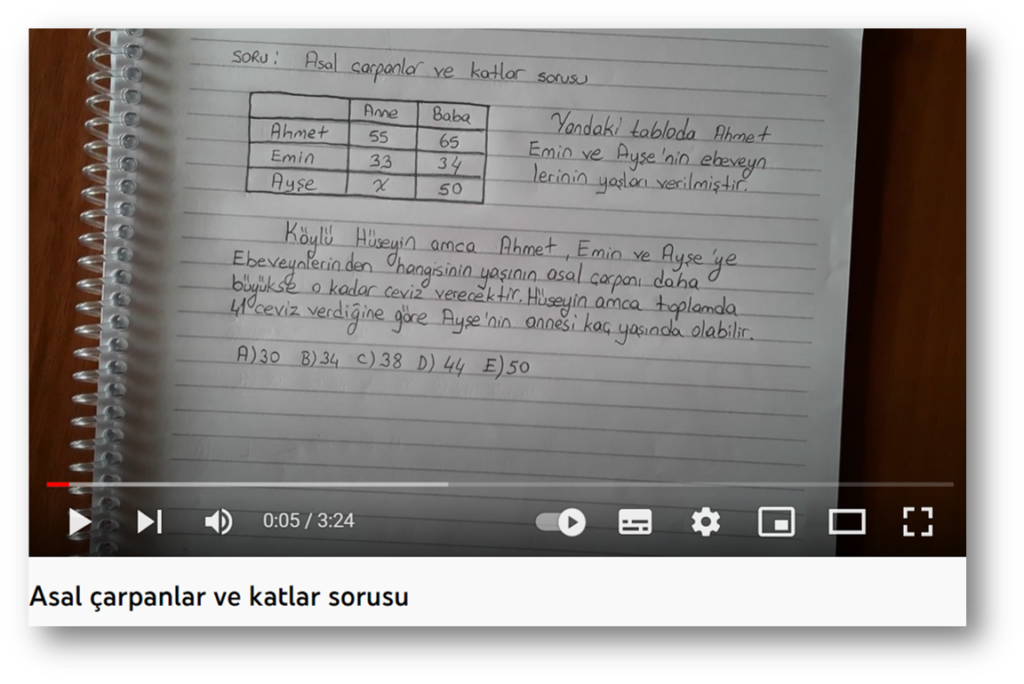 SORU: Asal çarpanlar ve katlar sorusu
Anne Baba
Ahmet 55 65
Emin 33 34
Ayşe x 50
Yandaki tabloda Ahmet
Emin ve Ayşe'nin ebeveyn
lerinin yaşları verilmiştir.
Köylü Hüseyin amca Ahmet, Emin ve Ayşe'ye
Ebeveynlerinden hangisinin yaşının asal çarpanı daha
büyükse o kadar ceviz verecektir. Hüseyin amca toplamda
41 ceviz verdiğine göre Ayşe'nin annesi kaç yaşında olabilir.
A) 30 B) 34 C) 38 D) 44 E) 50
0:05 / 3:24
Asal çarpanlar ve katlar sorusu